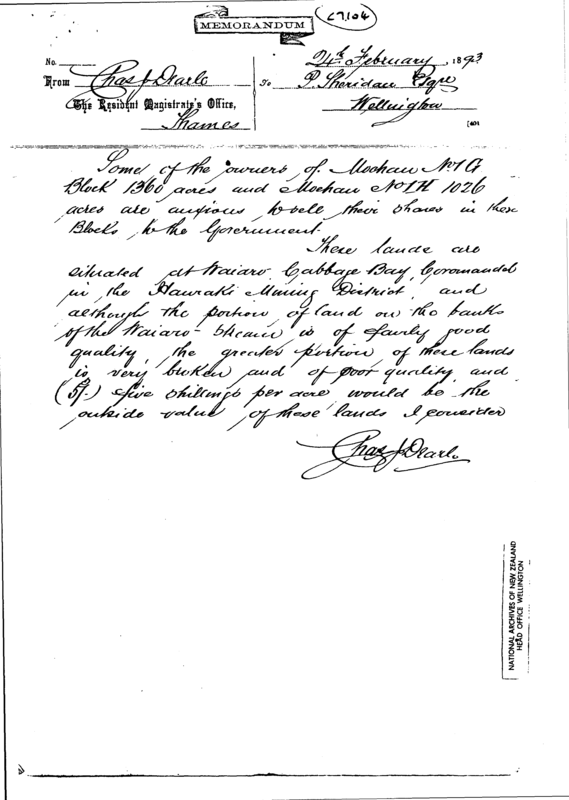 C7,04
MEMORANDUM
No.
24th February, 1893
From Chas J Dearle
To P. Sheridan Esqre
The Resident Magistrate's Office,
Thames
Wellington
Some of the owners of Moehau No 1 G
Block 1360 acres and Moehau No 1 H 1026
acres are anxious to sell their shares in these
Blocks to the Government.
These lands are
situated at Waiaro, Cabbage Bay, Coromandel
in the Hauraki Mining District, and
although the portion of land on the banks
of the Waiaro Stream is of fairly good
quality, the greater portion of these lands
is very broken and of poor quality and
(5/-) five shillings per acre would be the
outside value of these lands I consider
Chas J Dearle
NATIONAL ARCHIVES OF NEW ZEALAND
HEAD OFFICE WELLINGTON